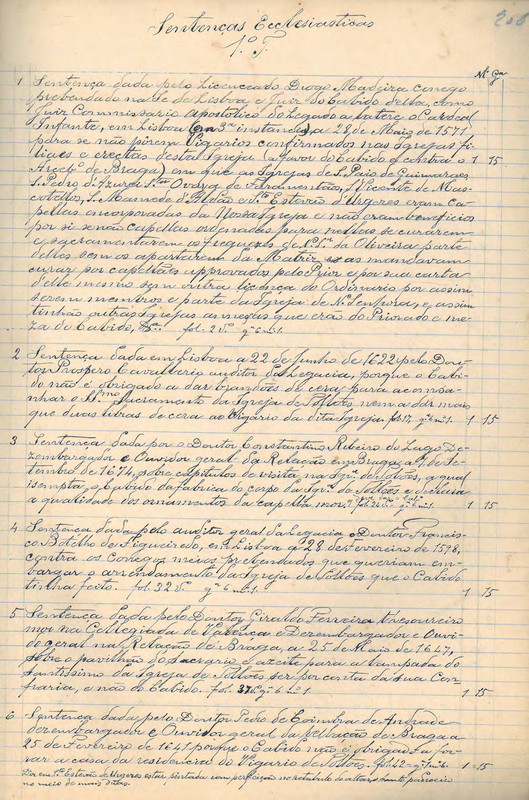 Sentenças Ecclesiasticas
208
1.º T.
Nº Gª
1 Sentença dada pelo Licenceado Diogo Madeira conego
prebendado na Sé de Lisboa e Juiz do Cabido della, como
Juiz Commissario apostolico delegado a latere o Cardeal
Infante, em Lisboa (em 3ª instancia) a 28 de Maio de 1571
para se não pôrem Vigarios confirmados nas Igrejas fi-
liaes e erectas desta Igreja (a favor do Cabido e contra o 1 15
Arcebº de Braga) em que as Igrejas de S. Paio de Guimaraes
S. Pedro d'Azurei Stª Ovaya de Fermentões, S. Vicente de Mas-
cotellos, S. Mamede d'Aldão e Stº Estevão d'Urgeres eram Ca-
pellas encorporadas da Nossa Igreja e não eram beneficios
por si senão capellas ordenadas para nellas se curarem
e sacramentarem os freguezes de N. Srª da Oliveira parte
delles sem os apartarem da Matriz, e as mandavam
curar por capellães approvados pelo Prior e por sua carta
delle mesmo sem outra licença do Ordinario por assim
serem membros e parte da Igreja de Nª Senhora, e assim
tinhão outras Igrejas annexas que erão do Priorado e me-
za do Cabido, &ª. fol. 2 vº gª 6 nº 1.
2 Sentença dada em Lisboa a 22 de Junho de 1622 pelo Dou-
tor Prospero Cavalherio auditor da Legacia, porque o Cabi-
do não é obrigado a dar brandões de cera para acompa-
nhar o Stmo Sacramento da Igreja de Tolões nem a dar mais
que duas libras de cera ao Vigario da dita Igreja. fol. 17, gª 6 nº 1. 1 15
3 Sentença dada por o Doutor Constantino Ribeiro do Lago De-
zembargador e Ouvidor geral da Relação em Braga a 7 de Se-
tembro de 1674, sobre capitulos de visita na Igrª de Tolões, a qual
isempta o Cabido da fabrica do corpo da Igrª de Tolões e declara
a qualidade dos ornamentos da capella mor. fol. 25 vº gª 6 nº 1. 1 15
4 Sentença dada pelo auditor geral da Legacia o Doutor Francis-
co Botelho de Figueiredo, em Lisboa a 28 de Fevereiro de 1578,
contra os Conegos meios prebendados que queriam em-
bargar o arrendamento da Igreja de Tolões que o Cabido
tinha feito. fol. 32 vº gª 6 nº 1. 1 15
5 Sentença dada pelo Doutor Giraldo Ferreira Thesoureiro
mor na Collegiada de Valença e Dezembargador e Ouvi-
dor geral na Relação de Braga, a 25 de Maio de 1647,
sobre o pavilhão do sacrario e azeite para a lampada do
Santissimo da Igreja de Tolões ser por conta da sua Con-
fraria, e não do Cabido. fol. 37 vº gª 6 nº 1. 1 15
6 Sentença dada pelo Doutor Pedro de Coimbra de Andrade
dezembargador e Ouvidor geral da Relação de Braga a
25 de Fevereiro de 1641 porque o Cabido não é obrigado a for-
rar a casa da residencia do Vigario de Tolões. fol. 42 = gª 6 nº 1. 1 15
Stº Estevão de Urgeres estar pintada com perfeição no retabulo do altar o Santo padroeiro
no meio do mais